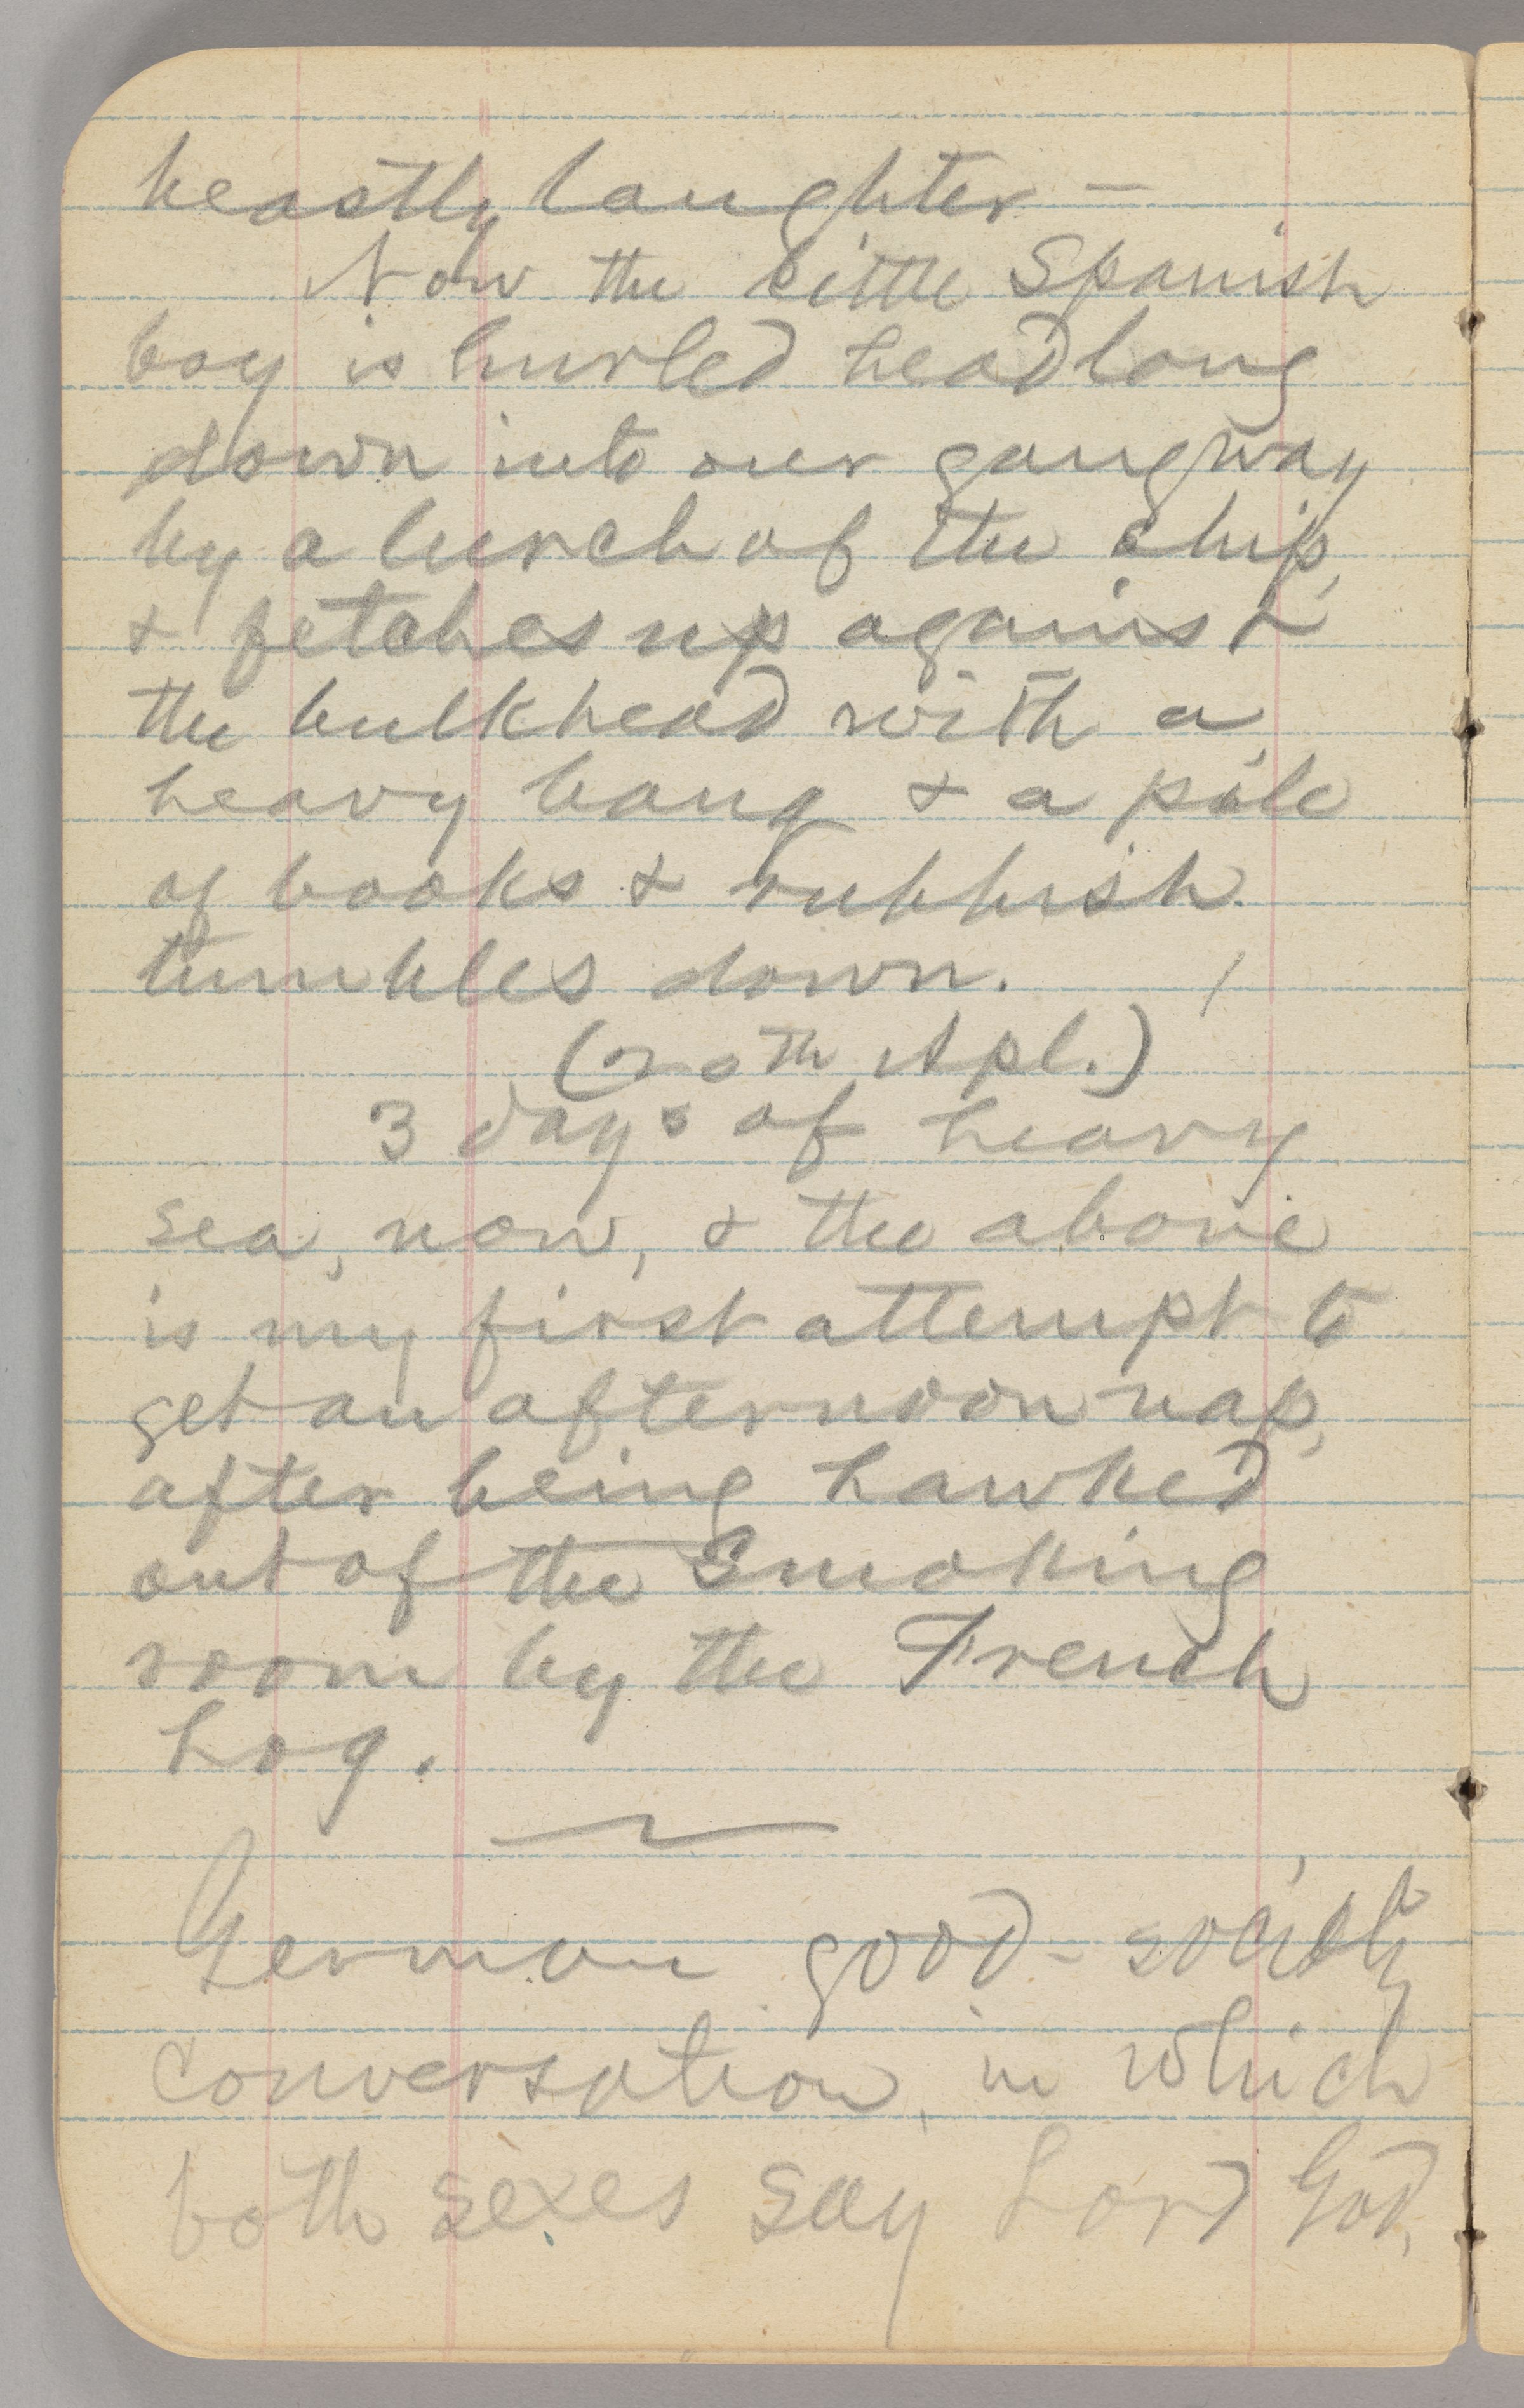 beastly laughter —
Now the little Spanish
boy is hurled headlong
down into our gangway
by a lurch of the ship,
& fetches up against
the bulkhead with a
heavy bang & a pile
of books & rubbish
tumbles down.
(20th Apl.)
3 days of heavy
sea, now, & the above
is my first attempt to
get an afternoon nap,
after being hawked
out of the smoking
room by the French
hog.
German good-society
conversation, in which
both sexes say Lord God,